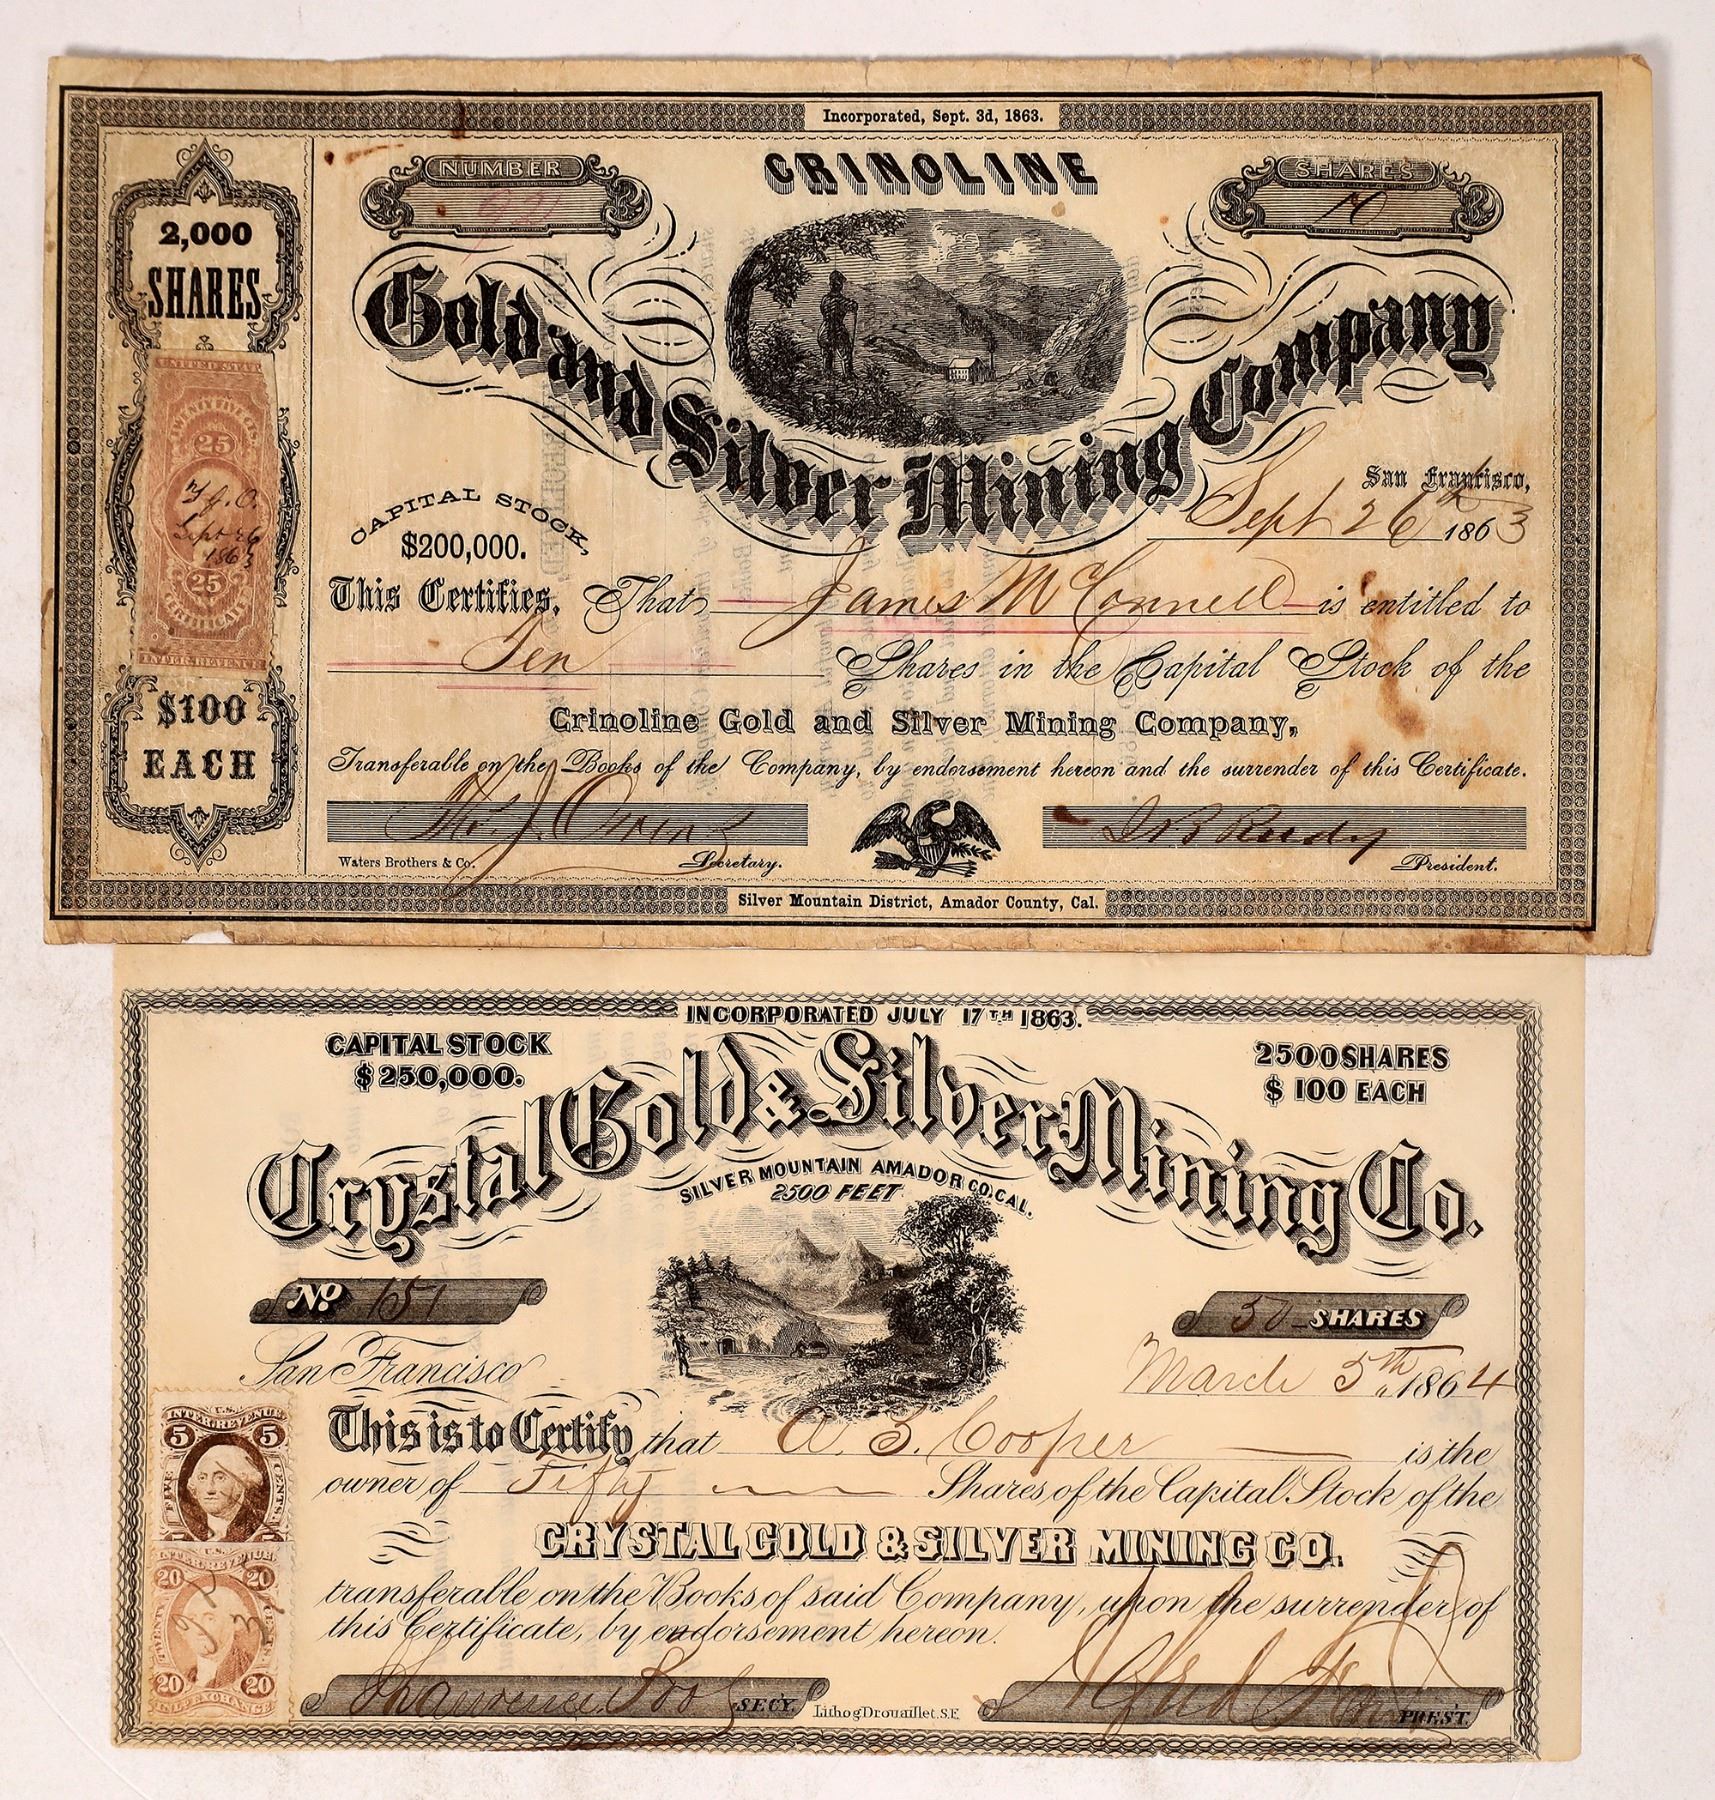 Incorporated, Sept. 3d, 1863.
NUMBER
92
CRINOLINE
SHARES
10
2,000
SHARES
Gold and Silver Mining Company
UNITED STATES
TWENTY FIVE CTS.
25
T J. O.
Sept 26
1863
25
CERTIFICATE
INTER. REVENUE
$100
EACH
CAPITAL STOCK,
$200,000.
San Francisco,
Sept 26th 1863
This Certifies, That James McConnell is entitled to
Ten Shares in the Capital Stock of the
Crinoline Gold and Silver Mining Company,
Transferable on the Books of the Company, by endorsement hereon and the surrender of this Certificate.
Waters Brothers & Co.
Secretary.
President.
Silver Mountain District, Amador County, Cal.
INCORPORATED JULY 17TH 1863.
CAPITAL STOCK
$250,000.
2500 SHARES
$100 EACH
Crystal Gold & Silver Mining Co.
SILVER MOUNTAIN AMADOR CO. CAL.
2500 FEET
No. 151
50 SHARES
San Francisco
March 5th 1864
This is to Certify that Cooper is the
owner of Fifty Shares of the Capital Stock of the
CRYSTAL GOLD & SILVER MINING CO.
transferable on the Books of said Company, upon the surrender of
this Certificate, by endorsement hereon.
U.S.
INTER. REVENUE
5 5
FIVE CENTS.
U.S.
INTER. REVENUE
20 20
TWENTY CENTS.
20 20
SECY.
Lithog Drouaillet. S.F.
Alfred
PREST.